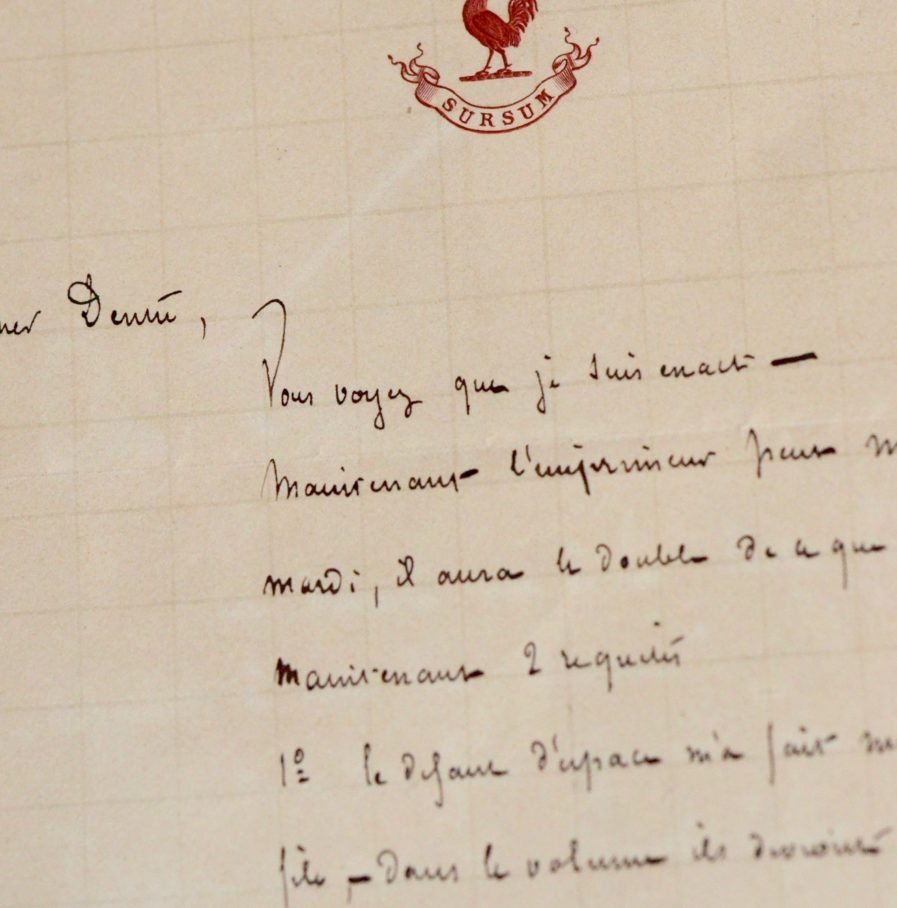 SURSUM
Dentu,
Vous voyez que je suis exact —
Maintenant l'imprimeur peut
mardi, il aura le double de ce que
Maintenant 2 requêtes
1º le défaut d'espace m'a fait
file, — Dans le volume ils devront